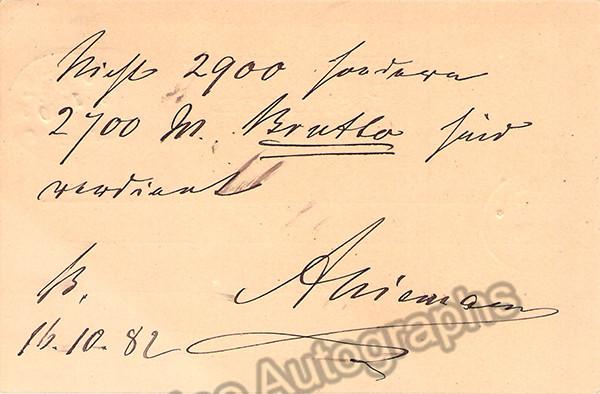 Nicht 2900 sondern
2700 M. Brutto sind
verdient
B.
16.10.82
ANiemann
Autographs